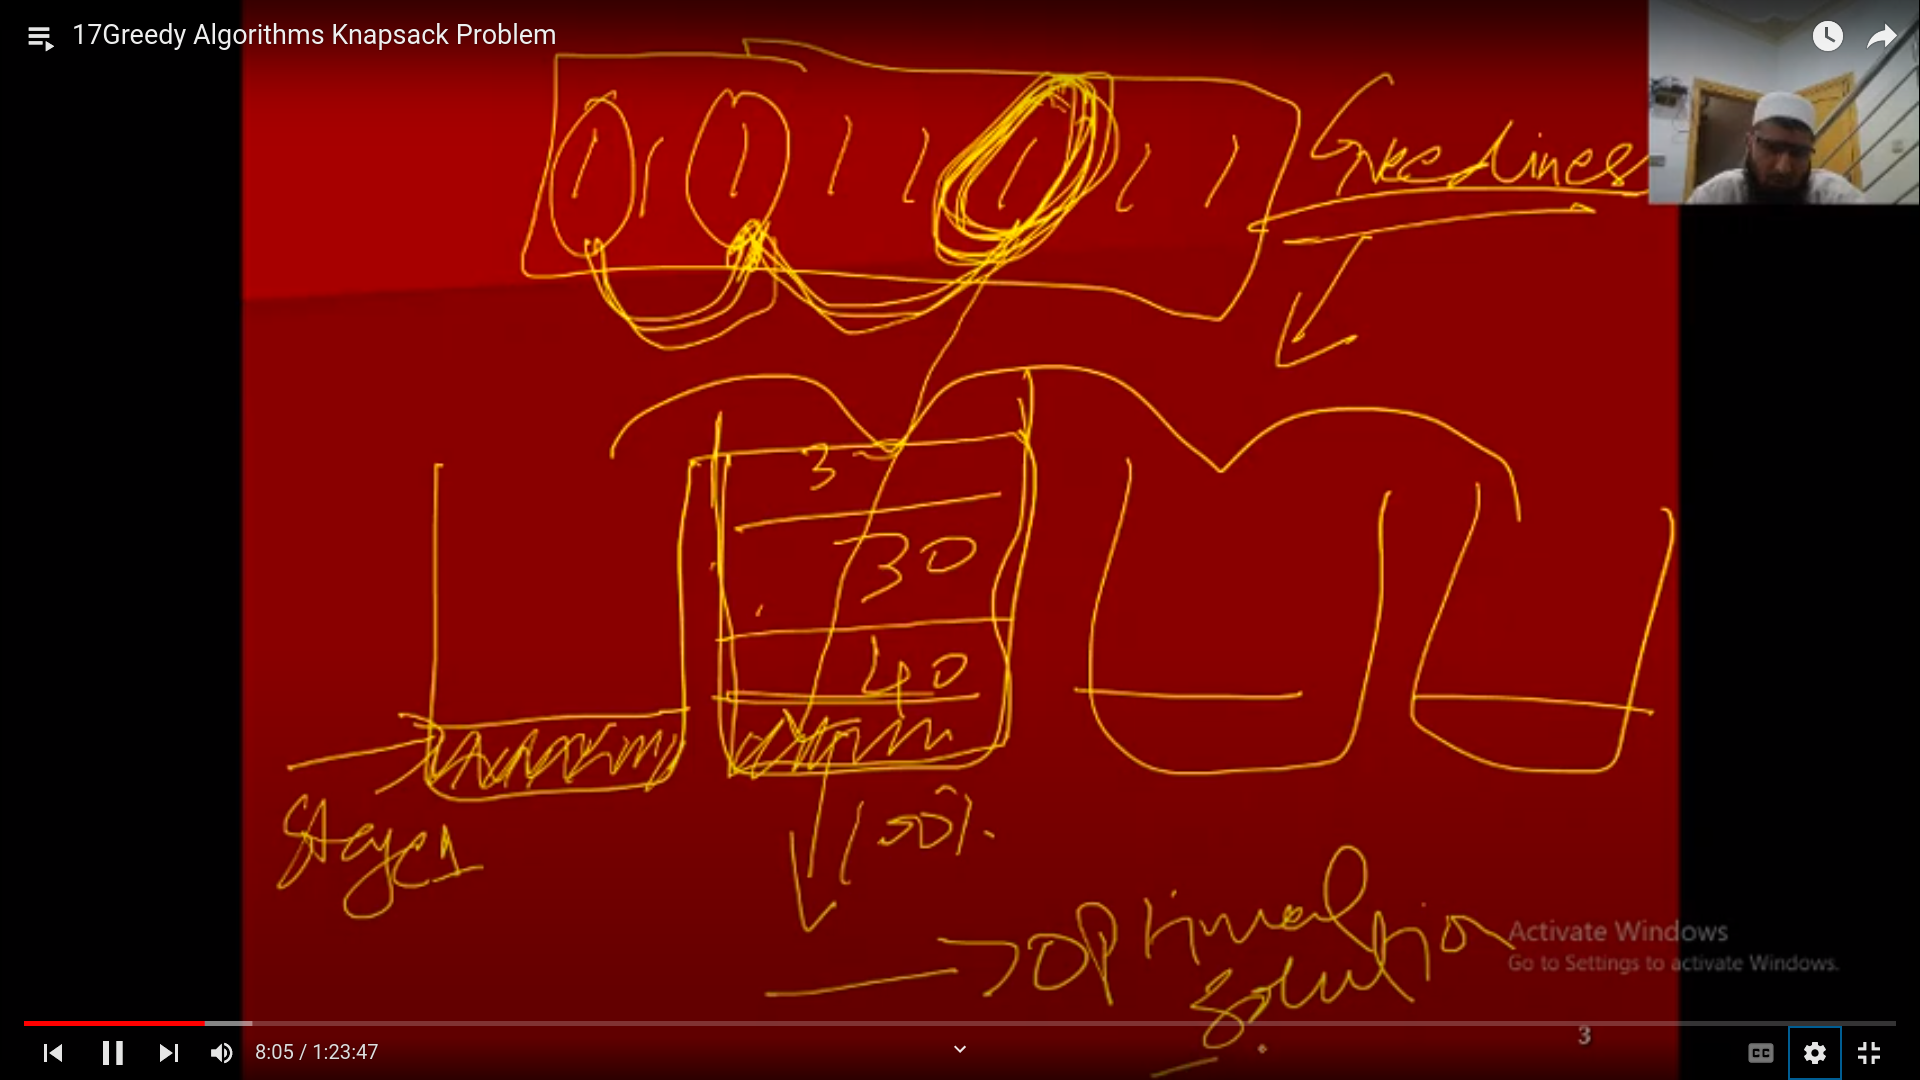 17Greedy Algorithms Knapsack Problem
Greedines
30
40
100%
Stage1
optimal
solution
Activate Windows
Go to Settings to activate Windows.
3
8:05 / 1:23:47
CC